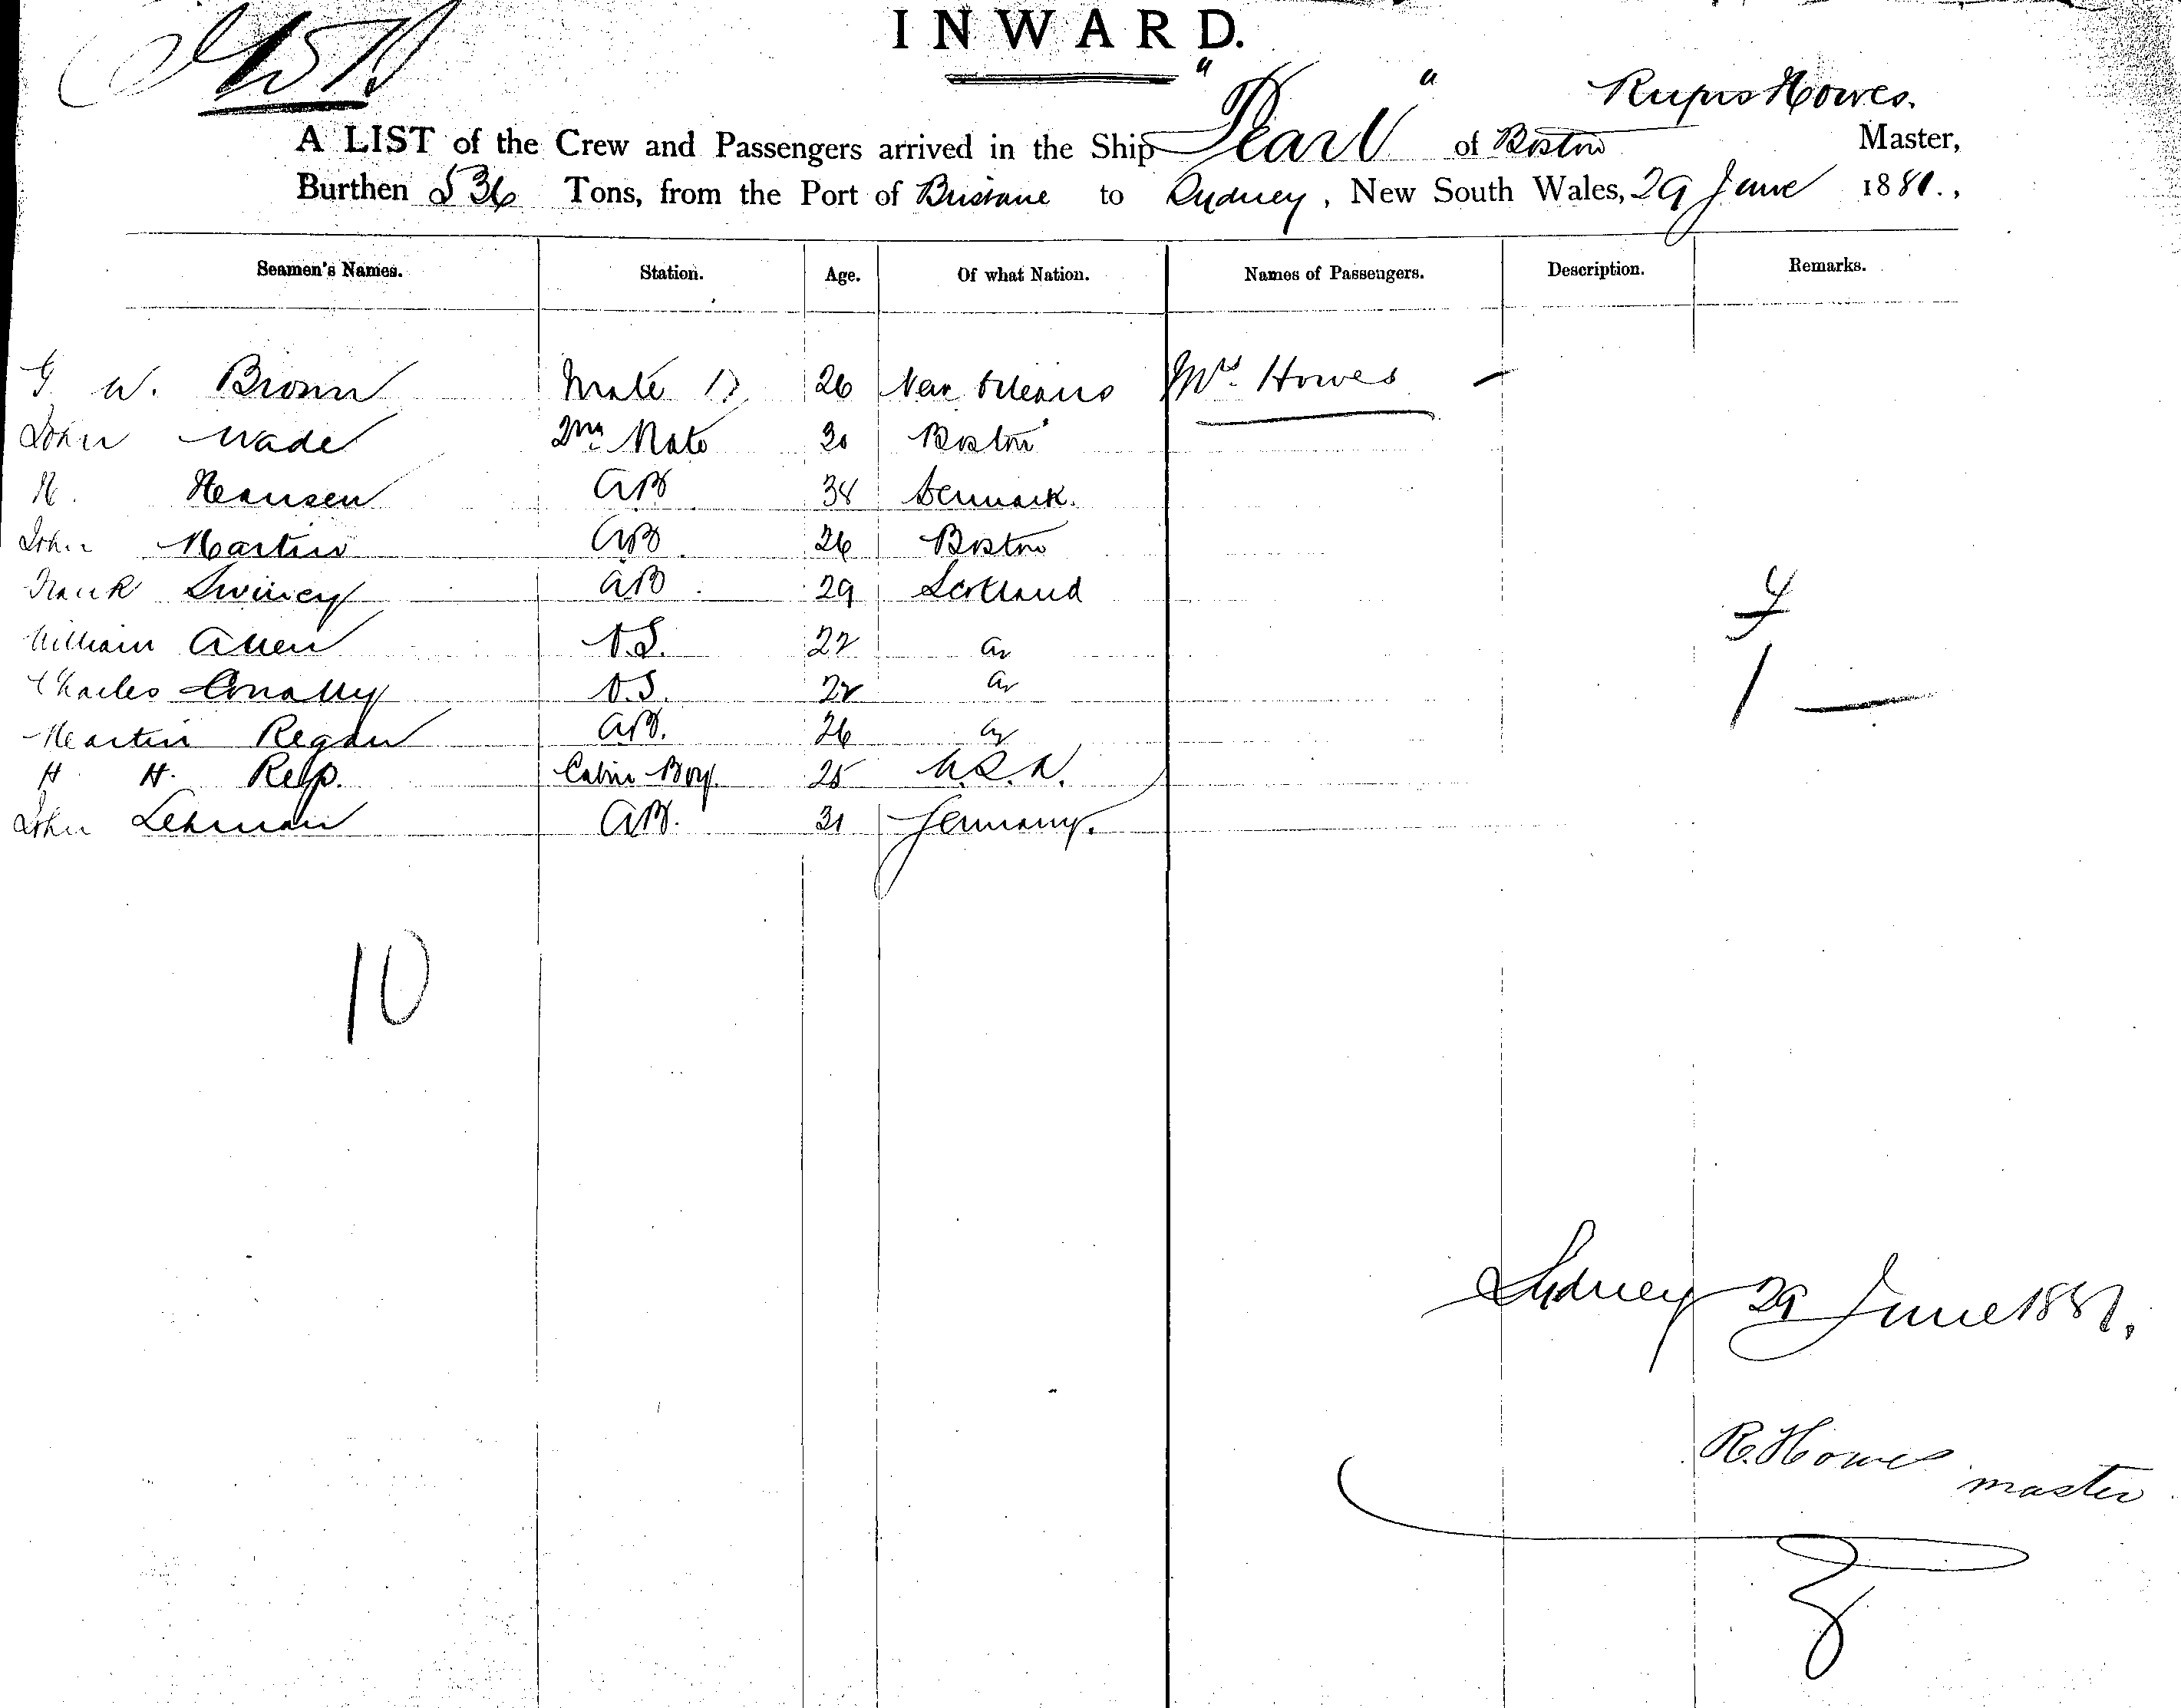 INWARD.
Rufus Howes.
A LIST of the Crew and Passengers arrived in the Ship "Pearl" of Boston Master,
Burthen 536 Tons, from the Port of Brisbane to Sydney, New South Wales, 29 June 1881.,
Seamen's Names. Station. Age. Of what Nation. Names of Passengers. Description. Remarks.
G W. Brown Mate 26 New Orleans Mrs. Howes —
John Wade 2nd Mate 30 Boston
H. Hansen AB 38 Denmark.
John Martin AB 26 Boston
Frank Swiney AB 29 Scotland
William Allen O.S. 22
Charles Conally O.S. 22
Martin Regan AB. 26
H H. Cabin Boy. 25 U.S.A.
John Lehman AB. 31 Germany.
1 —
10
Sydney 29 June 1881.
R. Howes master